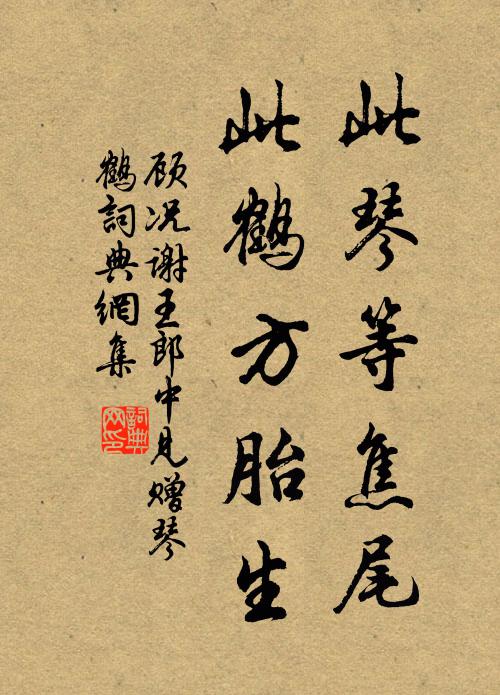 此琴等焦尾
此鹤方胎生
顾况谢王郎中见赠琴
鹤詞典網集
詞典
网印